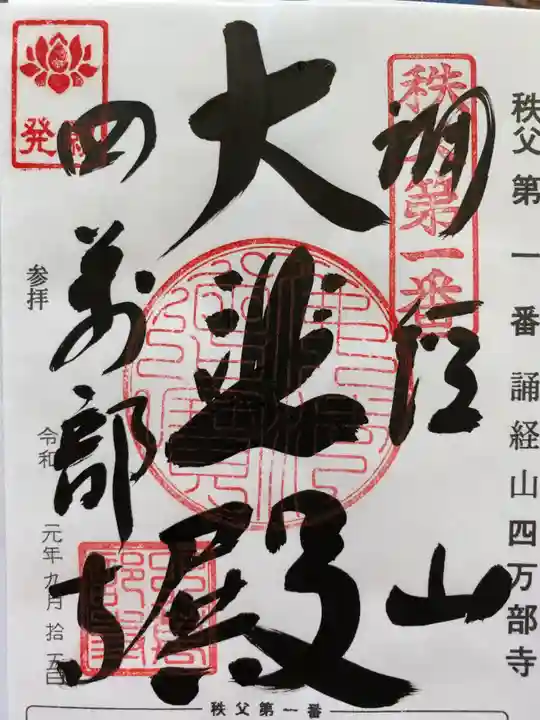 秩父第一番誦経山四万部寺
秩父第一番
誦経山
大悲殿
四萬部寺
発願
参拝
令和元年九月拾五日
秩父第一番